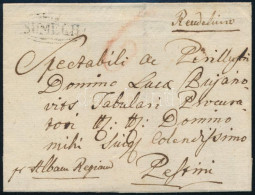 SÜMEGH
Spectabili ac Perillustri
Domino Lucæ Bujano
vits Tabulari Procura
tori
Domino
mihi
Colendissimo
Pestini
pr Albam Regiam